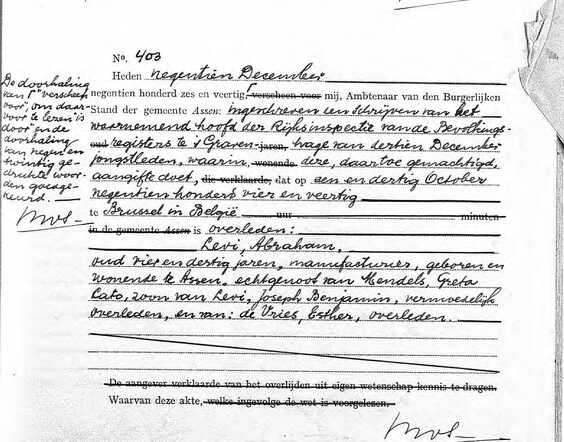 No. 403
Heden negentien December
negentien honderd zes en veertig, verscheen voor mij, Ambtenaar van den Burgerlijken
Stand der gemeente Assen: ingeschreven een schrijven van het
waarnemend hoofd der Rijksinspectie van de Bevolkings-
oud registers te 's Graven- jaren, hage van dertien December
jongstleden, waarin, wonende deze, daartoe gemachtigd,
aangifte doet, die verklaarde, dat op een en dertig October
negentien honderd vier en veertig
te Brussel in België uur minuten
in de gemeente Assen is overleden:
Levi, Abraham,
oud vier en dertig jaren, manufacturier, geboren en
wonende te Assen, echtgenoot van Mendels, Greta
Cato, zoon van Levi, Joseph Benjamin, vermoedelijk
overleden, en van: de Vries, Esther, overleden.
De aangever verklaarde van het overlijden uit eigen wetenschap kennis te dragen.
Waarvan deze akte, welke ingevolge de wet is voorgelezen.
De doorhaling
van "verscheen
voor", om daar-
voor te lezen: is
door" en de
doorhaling
van negen en
twintig ge-
drukte woor-
den goedge-
keurd.